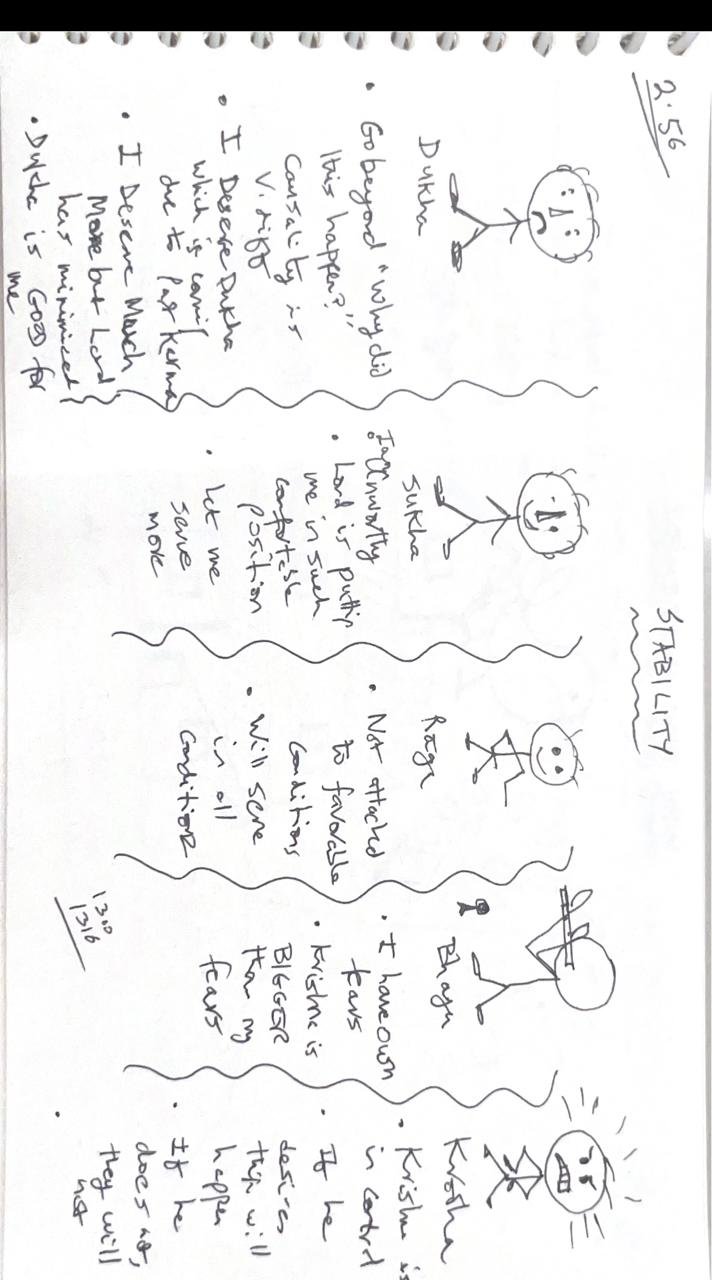 2.56
STABILITY
Dukha
• Go beyond "Why did
this happen?"
Causality is
• I Deserve Dukha
which is coming
due to Past Karma
• I Deserve Much
More but Lord
has minimized
• Dukha is GOOD for
me
Sukha
• I am unworthy
• Lord is putting
me in such
comfortable
position
• Let me
serve
more
Raga
• Not attached
to favorable
conditions
• Will serve
in all
condition
Bhaya
• I have own
fears
• Krishna is
BIGGER
than my
fears
1300
1316
Krodha
• Krishna is
in control
• If he
desires
thin will
happen
• If he
does not,
they will
not